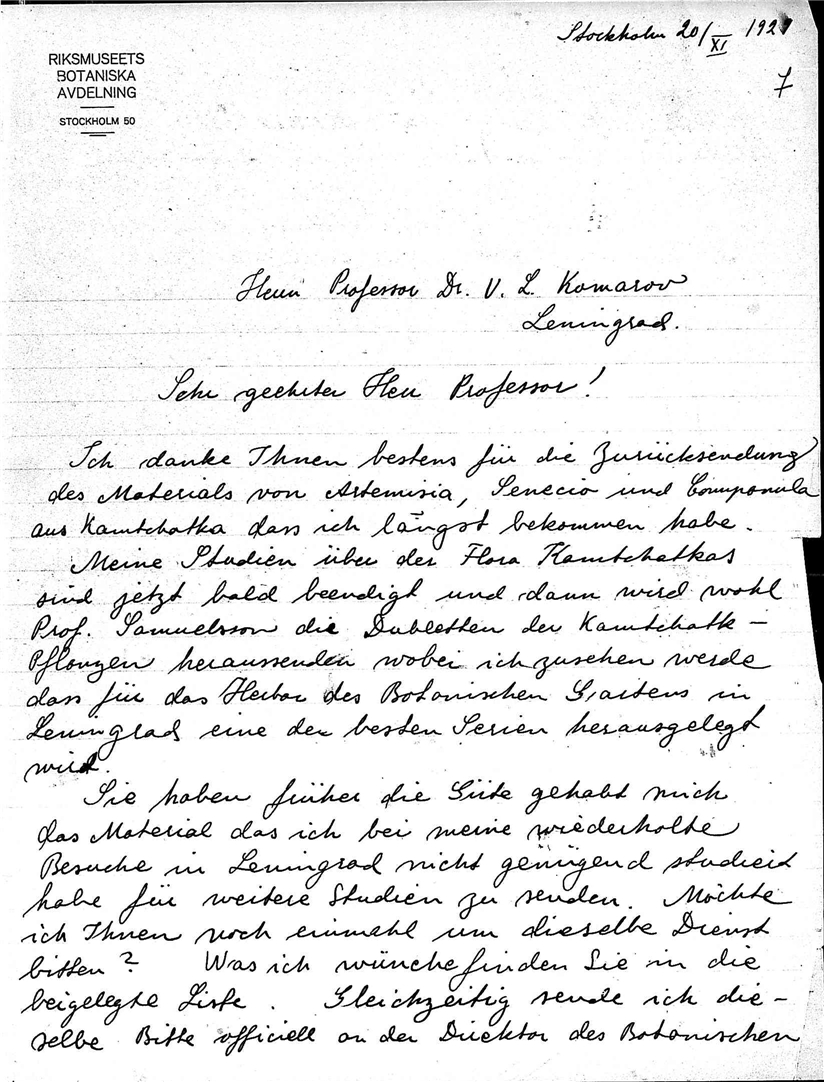 Stockholm 20/XI 1929
7
RIKSMUSEETS
BOTANISKA
AVDELNING
STOCKHOLM 50
Herrn Professor Dr. V. L. Komarov
Leningrad.
Sehr geehrter Herr Professor!
Ich danke Ihnen bestens für die Zurücksendung
des Materials von Artemisia, Senecio und Companula
aus Kamtchatka dass ich längst bekommen habe.
Meine Studien über der Flora Kamtchatkas
sind jetzt bald beendigt und dann wird wohl
Prof. Samuelsson die Dubletten der Kamtchatk-
Pflanzen heraussenden wobei ich zusehen werde
dass für das Herbar des Botanischen Gartens in
Leningrad eine der besten Serien herausgelegt
wird.
Sie haben früher die Güte gehabt mich
das Material das ich bei meine wiederholte
Besuche in Leningrad nicht genügend studiert
habe für weitere Studien zu senden. Möchte
ich Ihnen noch einmahl um dieselbe Dienst
bitten? Was ich wünche finden Sie in die
beigelegte Liste. Gleichzeitig sende ich die-
selbe Bitte officiell an der Direktor des Botanischen